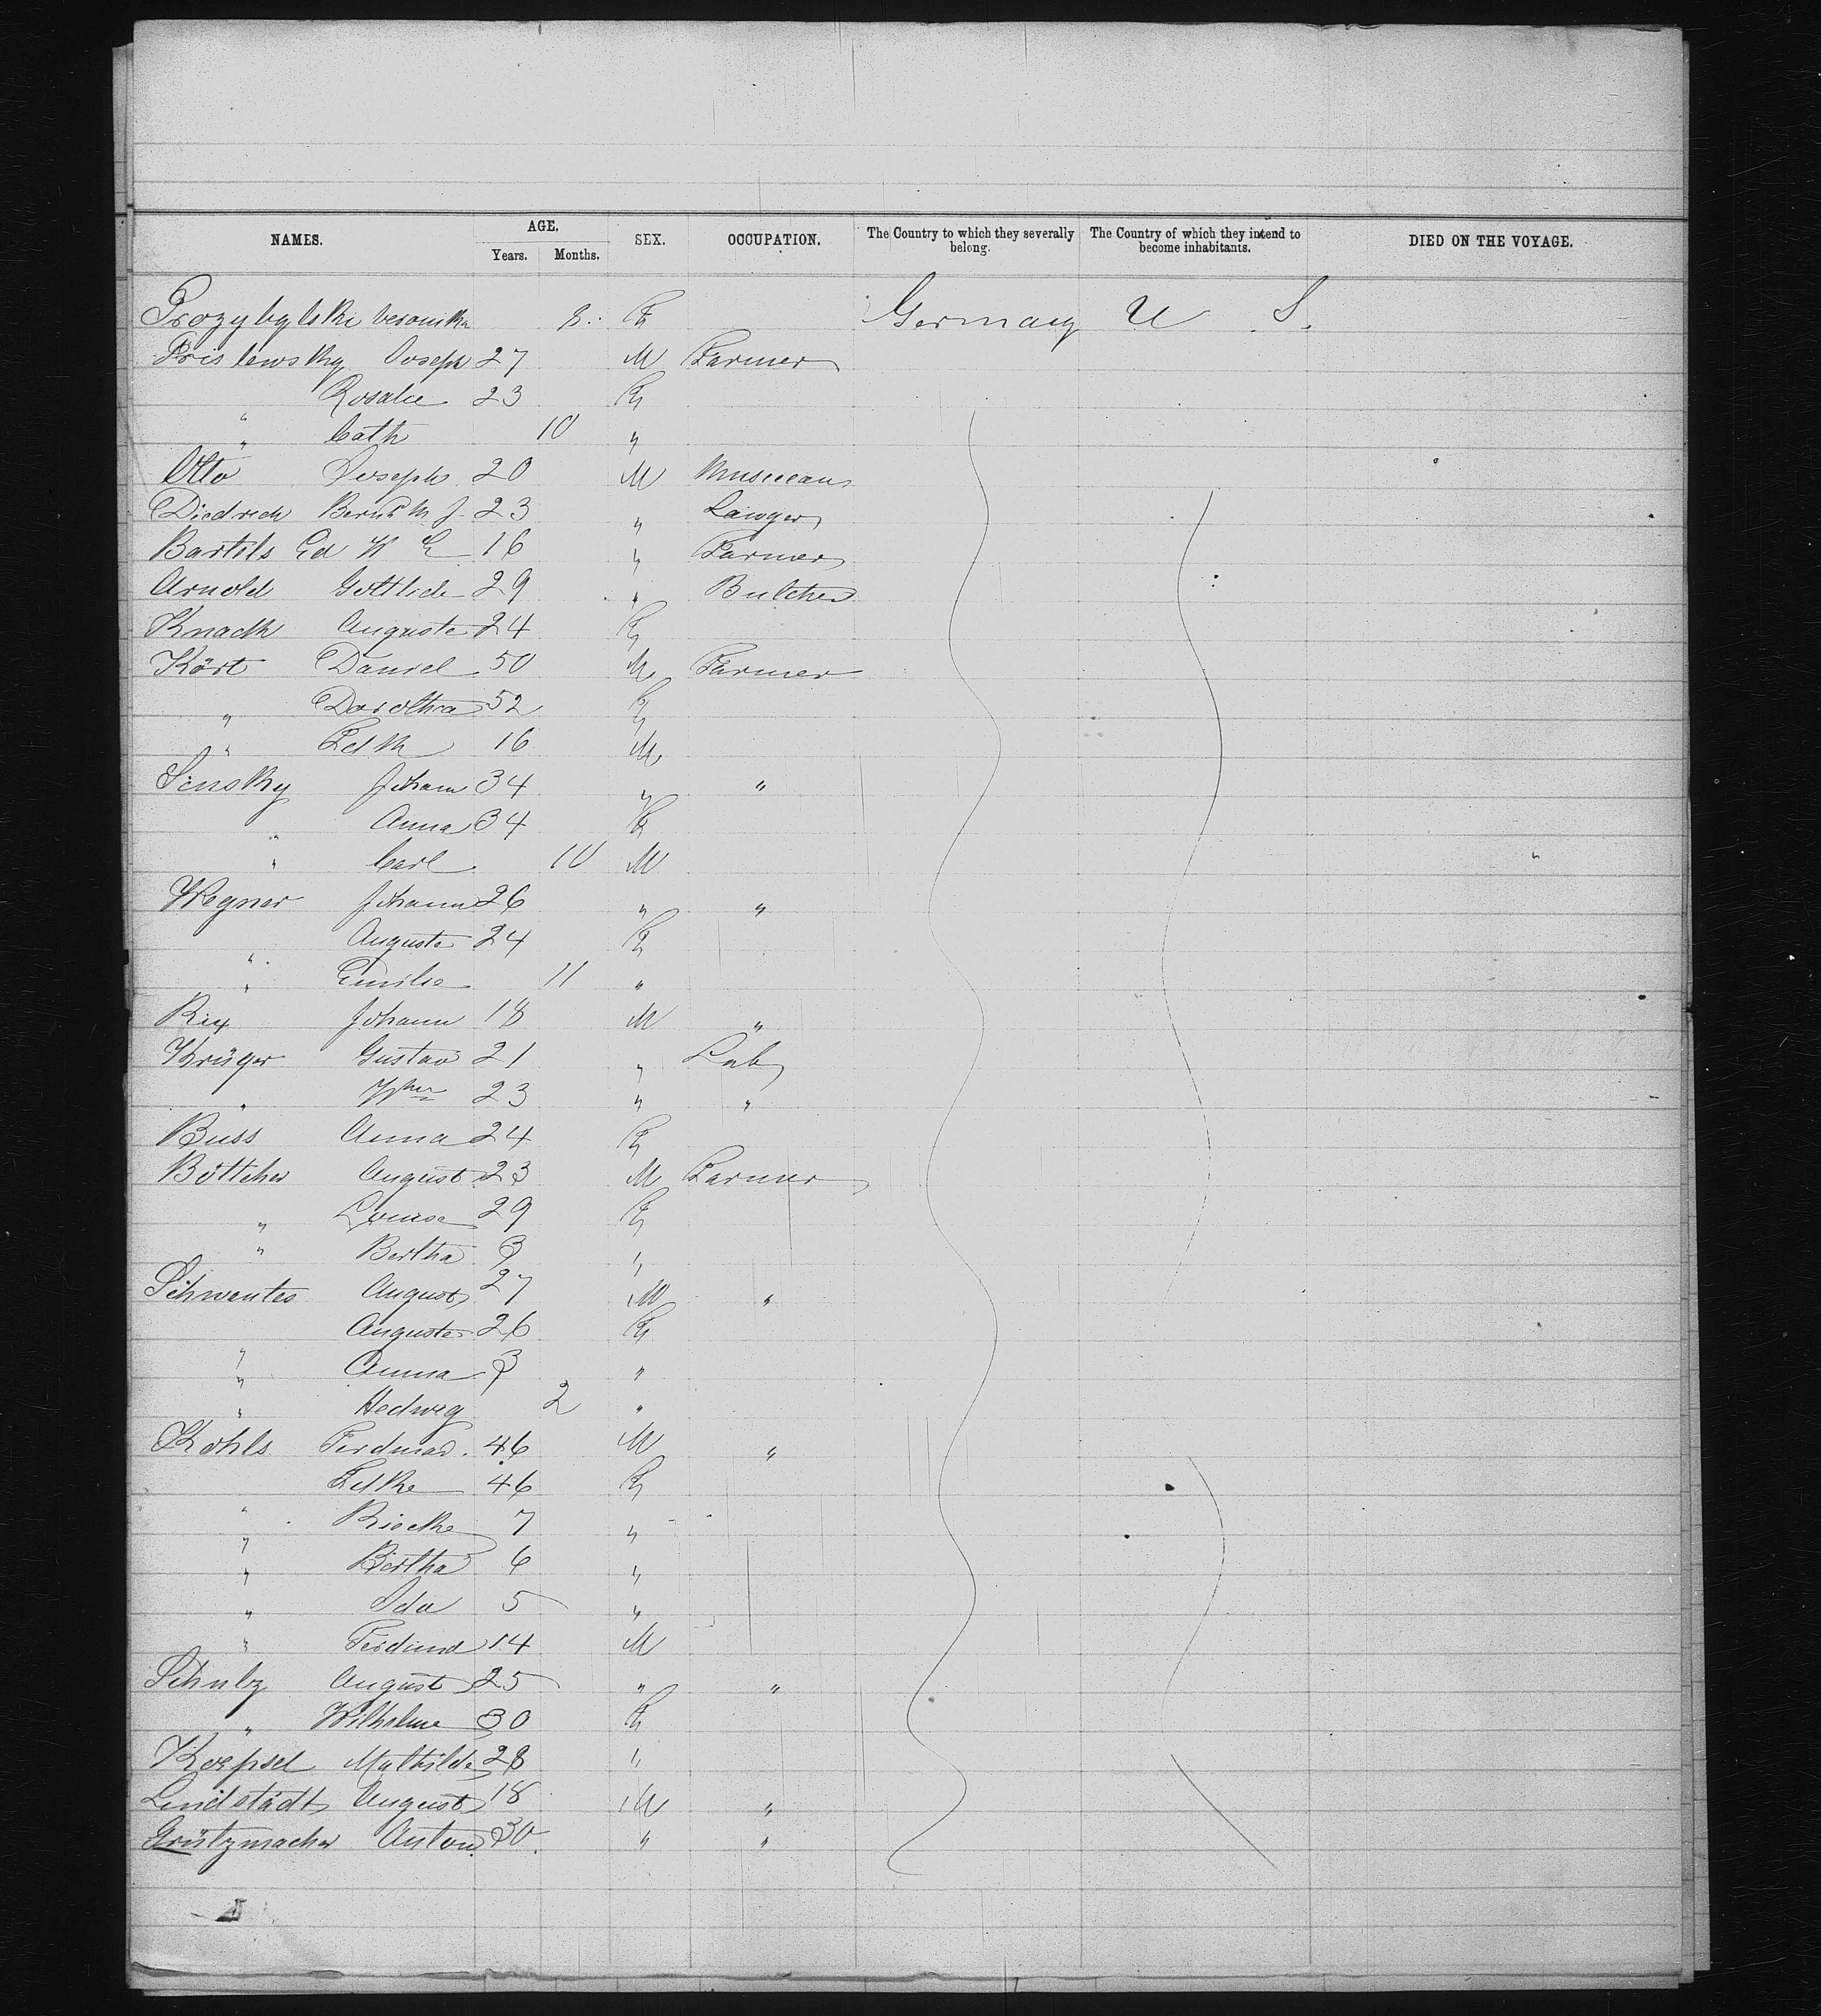 NAMES. AGE. Years. Months. SEX. OCCUPATION. The Country to which they severally belong. The Country of which they intend to become inhabitants. DIED ON THE VOYAGE.
Prozybylski Veronika 8 F Germany U S.
Prislewsky Joseph 27 M Farmer
Rosalie 23 F
" " Cath 10 "
Otto Joseph 20 M Musician
Diedrich Bernd M J 23 " Lawyer
Bartels Ed W E 16 " Farmer
Arnold Gottlieb 29 " Butcher
Knack Auguste 24 F
Kört Daniel 50 M Farmer
" Dorothea 52 F
" 16 M
Sensky Johann 34 " "
" Anna 34 F
" Carl 10 M
Wegner Johann 26 " "
" Auguste 24 F
" Emilie 11 "
Rix Johann 18 M "
Krüger Gustav 21 " Lab
" Whm 23 " "
Buss Anna 24 F
Böttcher August 23 M Farmer
" Louise 29 F
" Bertha 3 "
Schwantes August 27 M "
" Auguste 26 F
" Anna 3 "
" Hedwig 2 "
Kohls Ferdinad. 46 M "
46 F
" 7 "
" Bertha 6 "
" Ida 5 "
" Ferdinand 14 M
Schulz August 25 " "
" Wilhelme 30 F
Koepsel Mathilde 28 "
Lindstädt August 18 M "
Grützmacher Anton 30 " "